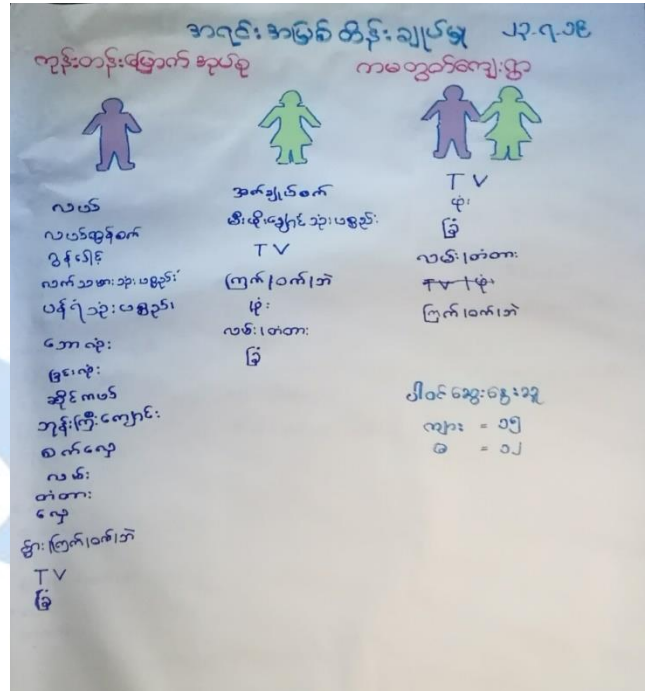 အရင်းအမြစ် ထိန်းချုပ်မှု ၂၃-၇-၁၉
ကုန်းတန်းမြောက် အုပ်စု
ကမတွတ်ကျေးရွာ
လယ်
လယ်ထွန်စက်
ဒွန်ဒေါင့်
လက်သမားသုံးပစ္စည်း
ပန်းရံသုံးပစ္စည်း
ဘောလုံး
ခြင်းလုံး
ဆိုင်ကယ်
ဘုန်းကြီးကျောင်း
စက်လှေ
လမ်း
တံတား
လှေ
နွား၊ကြက်၊ဝက်၊ဘဲ
TV
ခြံ
အပ်ချုပ်စက်
မီးဖိုချောင်သုံးပစ္စည်း
TV
ကြက်၊ဝက်၊ဘဲ
ဖုံး
လမ်း၊တံတား
ခြံ
TV
ဖုံး
ခြံ
လမ်း၊တံတား
TV၊ဖုံး
ကြက်၊ဝက်၊ဘဲ
ပါဝင်ဆွေးနွေးသူ
ကျား = ၁၅
မ = ၁၂